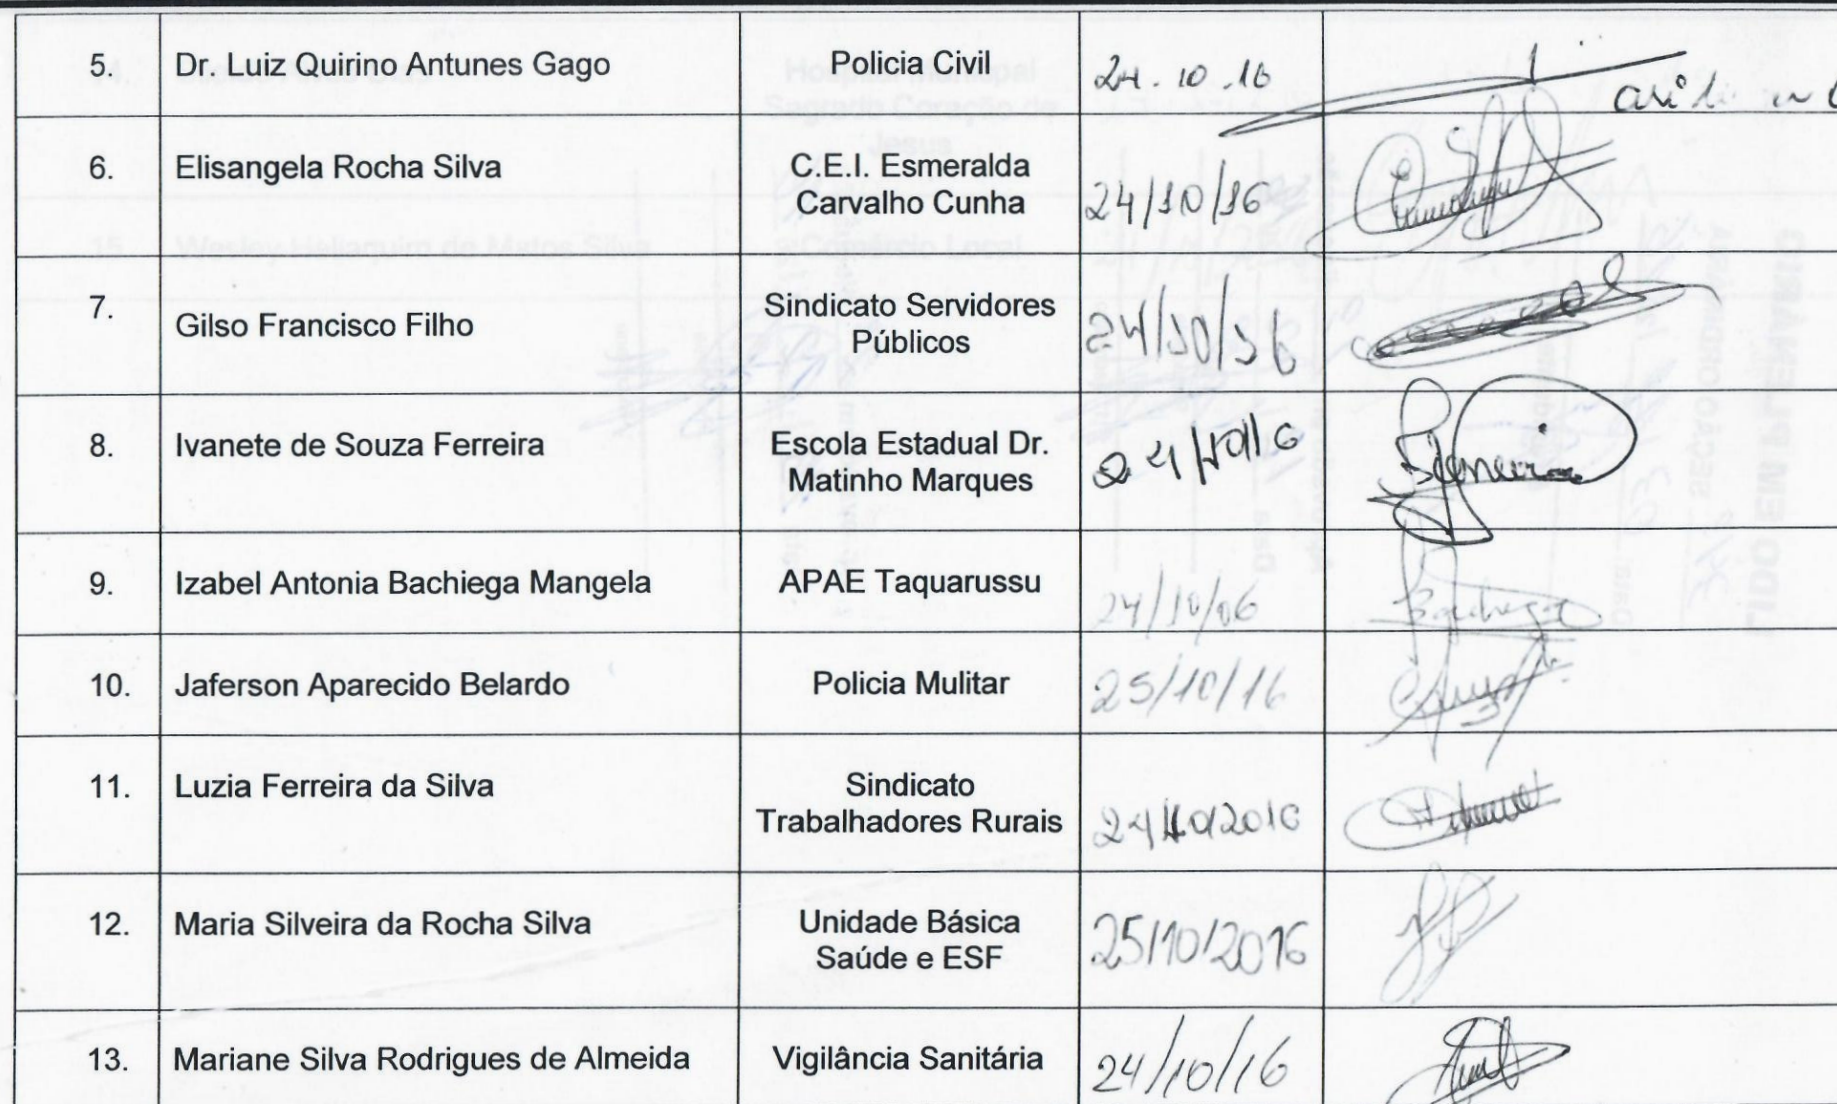 5. Dr. Luiz Quirino Antunes Gago Policia Civil 24.10.16
6. Elisangela Rocha Silva C.E.I. Esmeralda
Carvalho Cunha 24/10/16
7. Gilso Francisco Filho Sindicato Servidores
Públicos 24/10/16
8. Ivanete de Souza Ferreira Escola Estadual Dr.
Matinho Marques 24/10/16
9. Izabel Antonia Bachiega Mangela APAE Taquarussu 24/10/06
10. Jaferson Aparecido Belardo Policia Mulitar 25/10/16
11. Luzia Ferreira da Silva Sindicato
Trabalhadores Rurais 24/10/2016
12. Maria Silveira da Rocha Silva Unidade Básica
Saúde e ESF 25/10/2016
13. Mariane Silva Rodrigues de Almeida Vigilância Sanitária 24/10/16